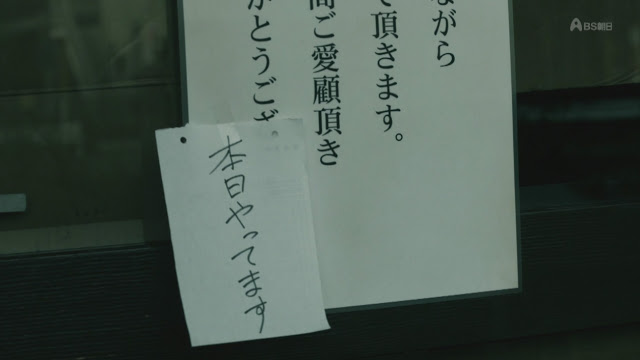 ながら
て頂きます。
間ご愛顧頂き
がとうござ
本日やってます
BS朝日